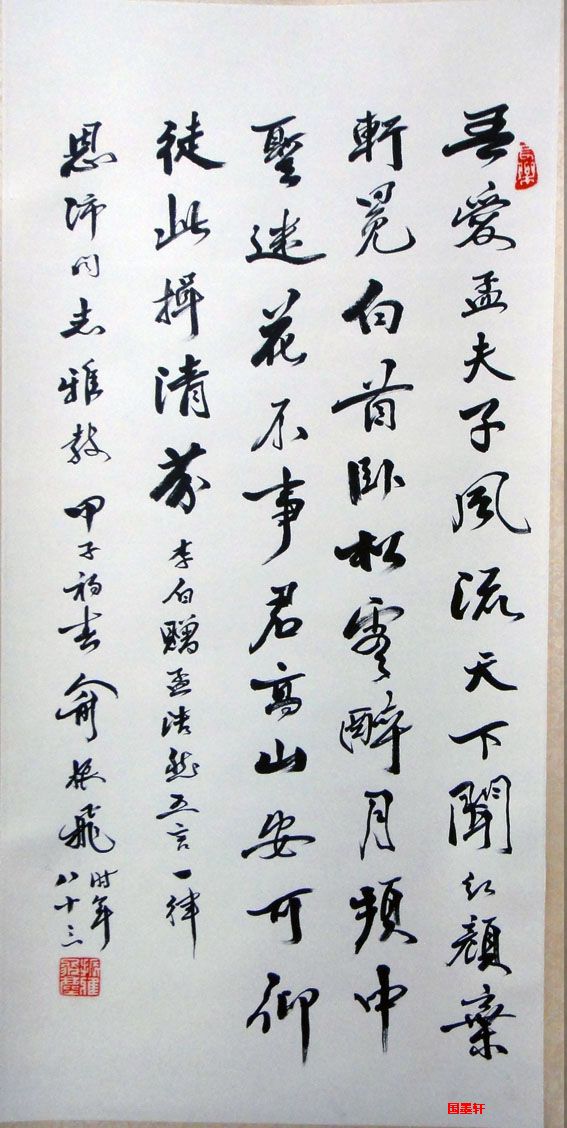 吾愛孟夫子風流天下聞紅顔棄
軒冕白首臥松雲醉月頻中
聖迷花不事君高山安可仰
徒此揖清芬李白贈孟浩然五言一律
恩沛同志雅教甲子初春俞振飛时年
八十三
国墨轩